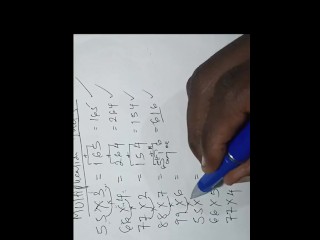 55 X 3 = 165 = 165 ✓
66 X 4 = 264 = 264 ✓
77 X 2 = 154 = 154 ✓
88 X 7 = = 616 ✓
99 X 6 =
55 X =
66 X 5
77 X 4